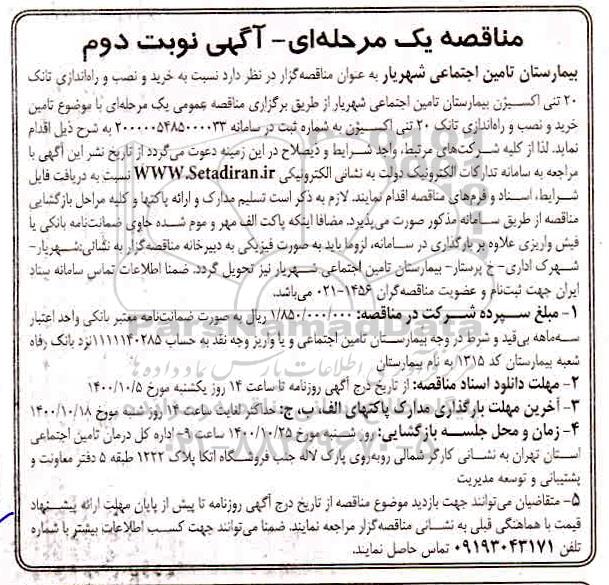 مناقصه یک مرحله‌ای- آگهی نوبت دوم
بیمارستان تامین اجتماعی شهریار به عنوان مناقصه‌گزار در نظر دارد نسبت به خرید و نصب و راه‌اندازی تانک
۲۰ تنی اکسیژن بیمارستان تامین اجتماعی شهریار از طریق برگزاری مناقصه عمومی یک مرحله‌ای با موضوع تامین
خرید و نصب و راه‌اندازی تانک ۲۰ تنی اکسیژن به شماره ثبت در سامانه ۲۰۰۰۰۰۵۴۸۵۰۰۰۰۳۳ به شرح ذیل اقدام
نماید. لذا از کلیه شرکت‌های مرتبط، واجد شرایط و ذیصلاح در این زمینه دعوت می‌گردد از تاریخ نشر این آگهی با
مراجعه به سامانه تدارکات الکترونیک دولت به نشانی الکترونیکی WWW.Setadiran.ir نسبت به دریافت فایل
شرایط، اسناد و فرم‌های مناقصه اقدام نمایند. لازم به ذکر است تسلیم مدارک و ارائه پاکتها و کلیه مراحل بازگشایی
مناقصه از طریق سامانه مذکور صورت می‌پذیرد. مضافا اینکه پاکت الف مهر و موم شده حاوی ضمانت‌نامه بانکی یا
فیش واریزی علاوه بر بارگذاری در سامانه، لزوما باید به صورت فیزیکی به دبیرخانه مناقصه‌گزار به نشانی:شهریار-
شهرک اداری-خ پرستار- بیمارستان تامین اجتماعی شهریار نیز تحویل گردد. ضمنا اطلاعات تماس سامانه ستاد
ایران جهت ثبت‌نام و عضویت مناقصه‌گران ۱۴۵۶-۰۲۱ می‌باشد.
۱- مبلغ سپرده شرکت در مناقصه: ۱/۸۵۰/۰۰۰/۰۰۰ ریال به صورت ضمانت‌نامه معتبر بانکی واحد اعتبار
سه‌ماهه بی‌قید و شرط در وجه بیمارستان تامین اجتماعی و یا واریز وجه نقد به حساب ۱۱۱۱۱۴۰۲۸۵نزد بانک رفاه
شعبه بیمارستان کد ۱۳۱۵ به نام بیمارستان
۲- مهلت دانلود اسناد مناقصه: از تاریخ درج آگهی روزنامه تا ساعت ۱۴ روز یکشنبه مورخ ۱۴۰۰/۱۰/۵
۳- آخرین مهلت بارگذاری مدارک پاکتهای الف، ب، ج: حداکثر لغایت ساعت ۱۴ روز شنبه مورخ ۱۴۰۰/۱۰/۱۸
۴- زمان و محل جلسه بازگشایی: روز شنبه مورخ ۱۴۰۰/۱۰/۲۵ ساعت ۹- اداره کل درمان تامین اجتماعی
استان تهران به نشانی کارگر شمالی روبروی پارک لاله جنب فروشگاه اتکا پلاک ۱۲۲۲ طبقه ۵ دفتر معاونت و
پشتیبانی و توسعه مدیریت
۵- متقاضیان می‌توانند جهت بازدید موضوع مناقصه از تاریخ درج آگهی روزنامه تا پیش از پایان مهلت ارائه پیشنهاد
قیمت با هماهنگی قبلی به نشانی مناقصه‌گزار مراجعه نمایند. ضمنا می‌توانند جهت کسب اطلاعات بیشتر با شماره
تلفن ۰۹۱۹۳۰۴۳۱۷۱ تماس حاصل نمایند.
ParsNamadData